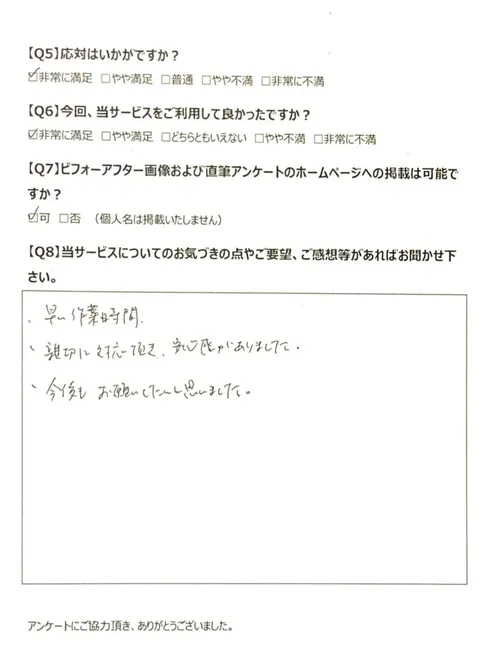 【Q5】応対はいかがですか？
☑非常に満足 □やや満足 □普通 □やや不満 □非常に不満
【Q6】今回、当サービスをご利用して良かったですか？
☑非常に満足 □やや満足 □どちらともいえない □やや不満 □非常に不満
【Q7】ビフォーアフター画像および直筆アンケートのホームページへの掲載は可能で
すか？
☑可 □否 （個人名は掲載いたしません）
【Q8】当サービスについてのお気づきの点やご要望、ご感想等があればお聞かせ下
さい。
、早い作業時間.
、親切に対応頂き、安心感がありました。
、今後もお願いしたいと思いました。
アンケートにご協力頂き、ありがとうございました。